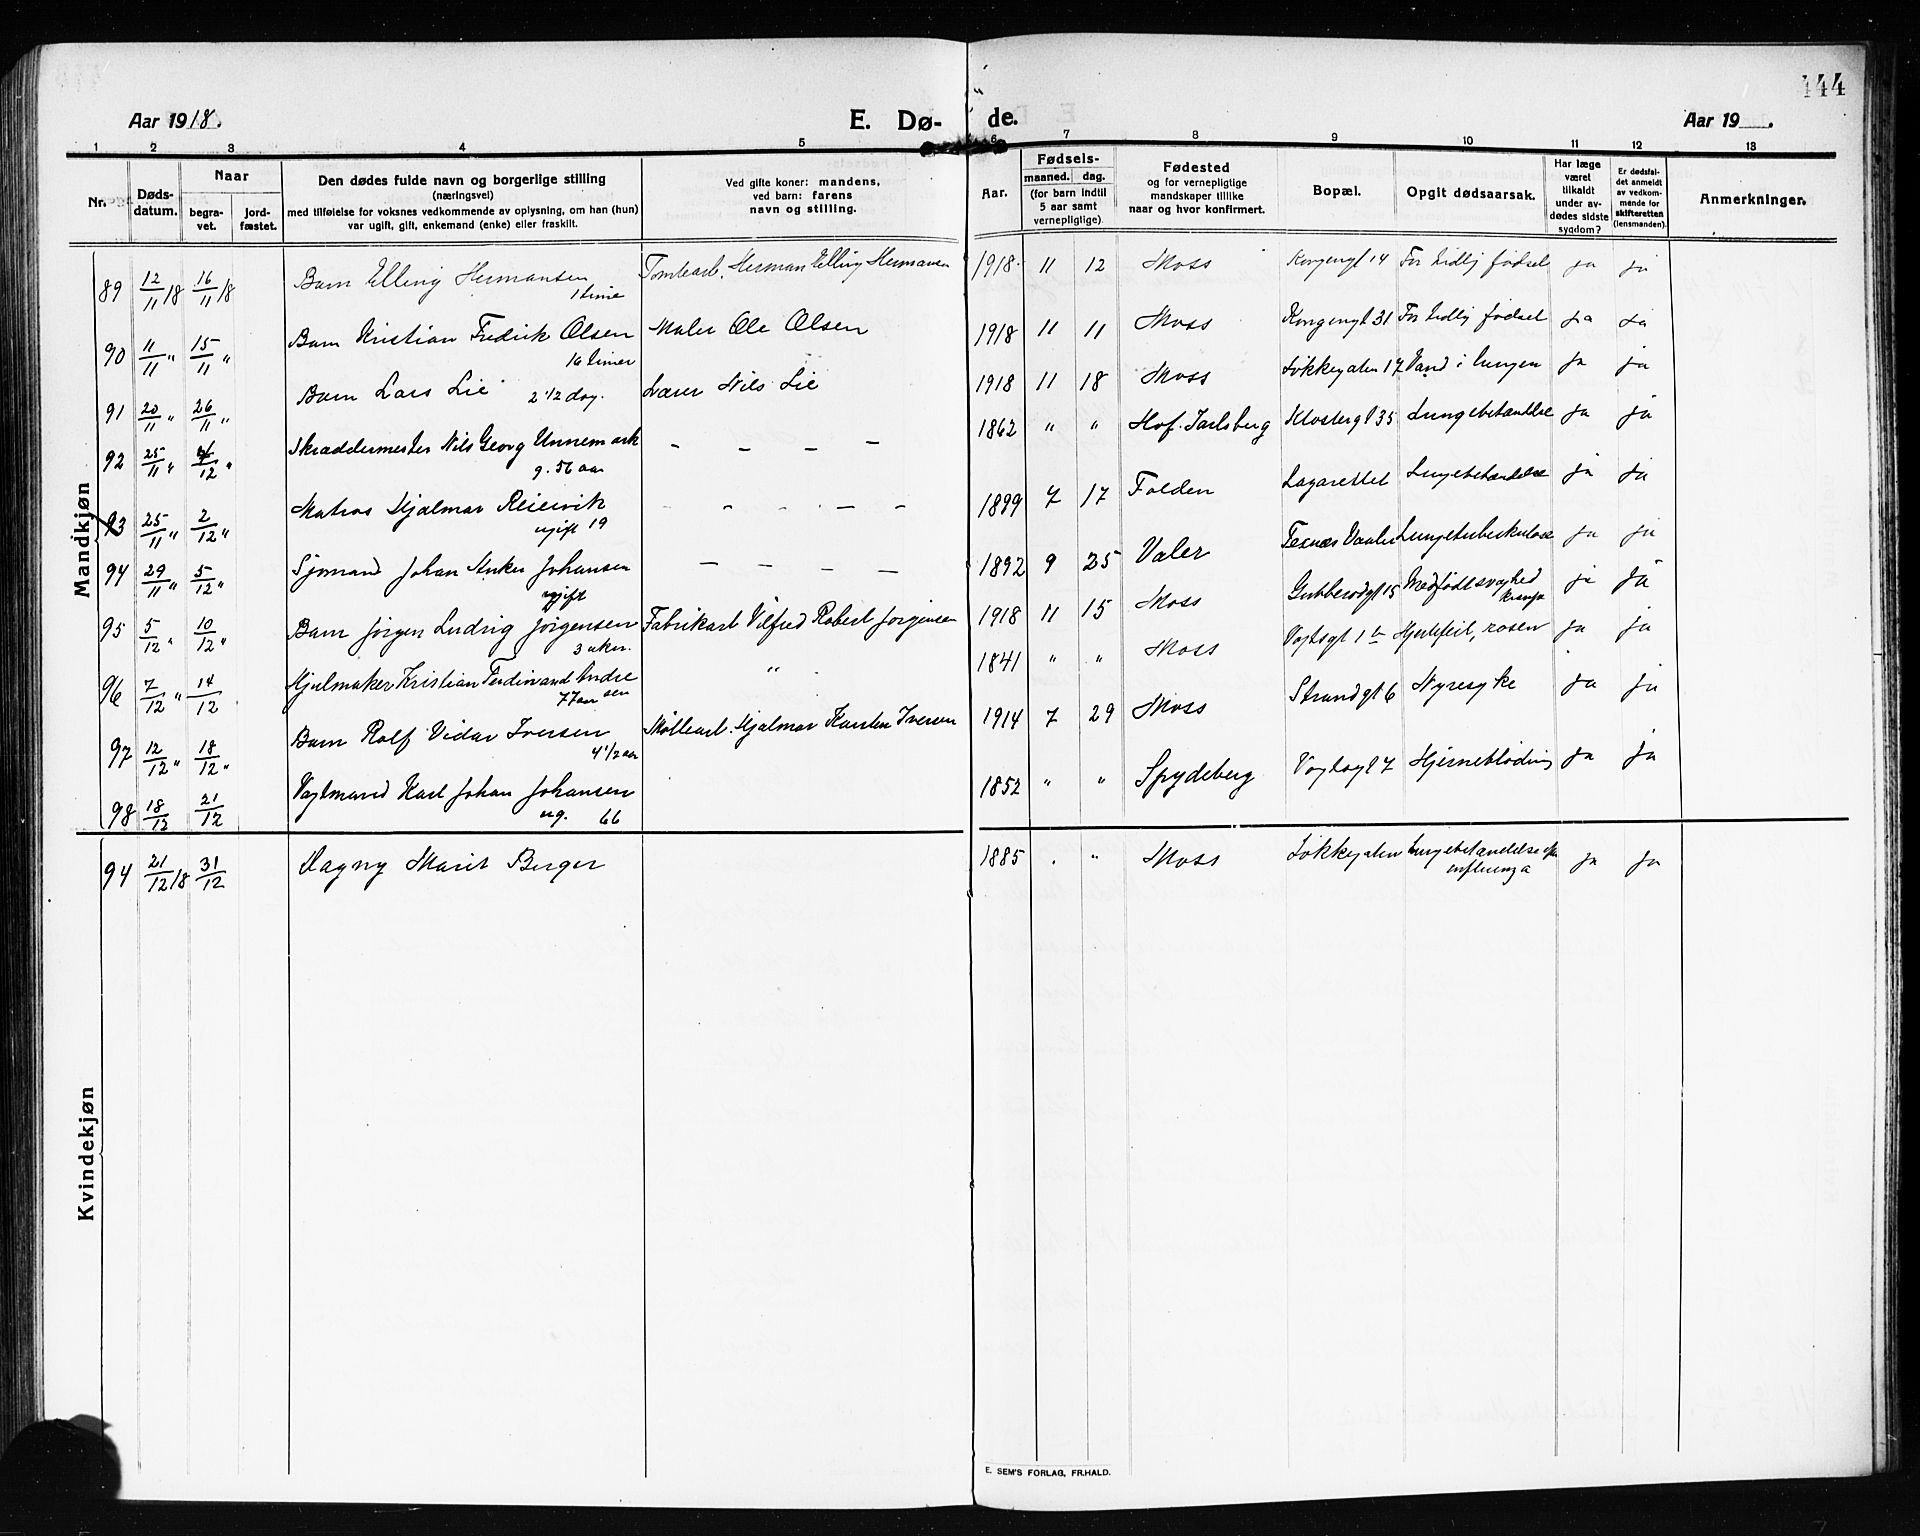 144
Aar 1918.
E. Dø-
de.
Aar 19 .
1 2 3 4 5 6 7 8 9 10 11 12 13
Nr.
Døds-
datum.
Naar
begra-
vet.
jord-
fæstet.
Den dødes fulde navn og borgerlige stilling
(næringsvei)
med tilføielse for voksnes vedkommende av oplysning, om han (hun)
var ugift, gift, enkemand (enke) eller fraskilt.
Ved gifte koner: mandens,
ved barn: farens
navn og stilling.
Aar.
Fødsels-
maaned. dag.
(for barn indtil
5 aar samt
vernepligtige)
Fødested
og for vernepligtige
mandskaper tillike
naar og hvor konfirmert.
Bopæl.
Opgit dødsaarsak.
Har læge
været
tilkaldt
under av-
dødes sidste
sygdom?
Er dødsfal-
det anmeldt
av vedkom-
mende for
skifteretten
(lensmanden).
Anmerkninger.
Mandkjøn
89 12/11 18 16/11 18 Barn Elling Hermansen Tomtearb. Herman Elling Hermansen 1918 11 12 Moss Kongensgt 14 For tidlig fødsel ja ja
1 time
90 11/11 " 15/11 " Barn Kristian Fredrik Olsen Maler Ole Olsen 1918 11 11 Moss Kongensgt 31 For tidlig fødsel ja ja
16 timer
91 20/11 " 26/11 " Barn Lars Lie 2 1/2 dag. Lærer Nils Lie 1918 11 18 Moss Løkkegaten 17 Vand i lungen ja ja
92 25/11 " 4/12 " Skræddermester Nils Georg Unnemark – – – – 1862 " " Hof. Jarlsberg Klostergt 35 Lungebetændelse ja ja
g. 56 aar
93 25/11 " 2/12 " Matros Hjalmar Reiersvik – – – – – 1899 7 17 Folden Lazarettet Lungebetændelse ja ja
ugift 19
94 29/11 " 5/12 " Sjømand Johan Anker Johansen – – – – 1892 9 25 Valer Texnæs Vaaler Lungetuberkulose ja ja
ugift
95 5/12 " 10/12 " Barn Jörgen Ludvig Jörgensen Fabrikarb Vilfred Robert Jorgensen 1918 11 15 Moss Gubberodgt 15 Medfødt svaghed ja ja
3 uker. krampe
96 7/12 " 14/12 Hjulmaker Kristian Ferdinand Andre " 1841 " " Moss Vogtsgt 1 b Hjertefeil, rosen ja ja
77 aar sen
97 12/12 " 18/12 " Barn Rolf Vidar Iversen Møllearb. Hjalmar Karsten Iversen 1914 7 29 Moss Strandgt 6 Nyresyke ja ja
4 1/2 aar
98 18/12 21/12 Vagtmand Karl Johan Johansen 1852 " " Spydeberg Vogtsgt 7 Hjerneblödning ja ja
ug. 66
Kvindekjøn
94 21/12 18 31/12 Dagny Marit Berger 1885 . " Moss Løkkegaten Lungebetændelse ja ja
influenza
E. SEM'S FORLAG, FR.HALD.